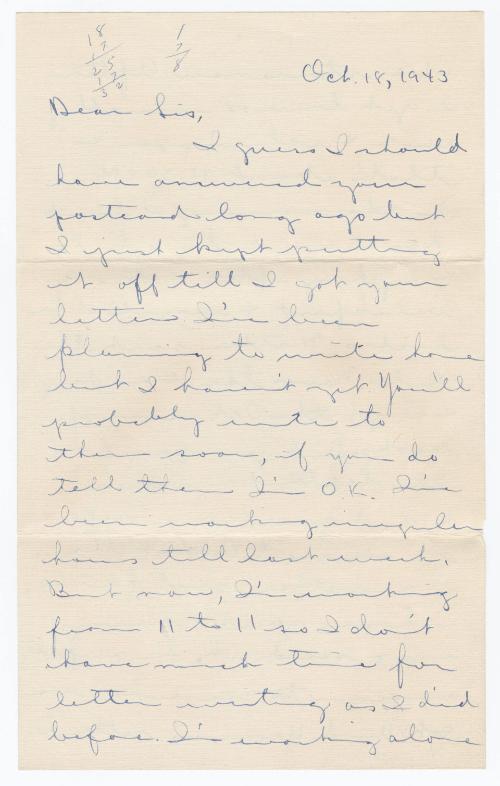 18
7
25
7
132
1
7
8
Oct. 18, 1943
Dear Sis,
I guess I should
have answered your
postcard long ago but
I just kept putting
it off till I got your
letter. I've been
planning to write home
but I haven't yet. You'll
probably write to
them soon, if you do
tell them I'm O.K. I've
been working irregular
hours till last week.
But now, I'm working
from 11 to 11 so I don't
have much time for
letter writing as I did
before. I'm working alone